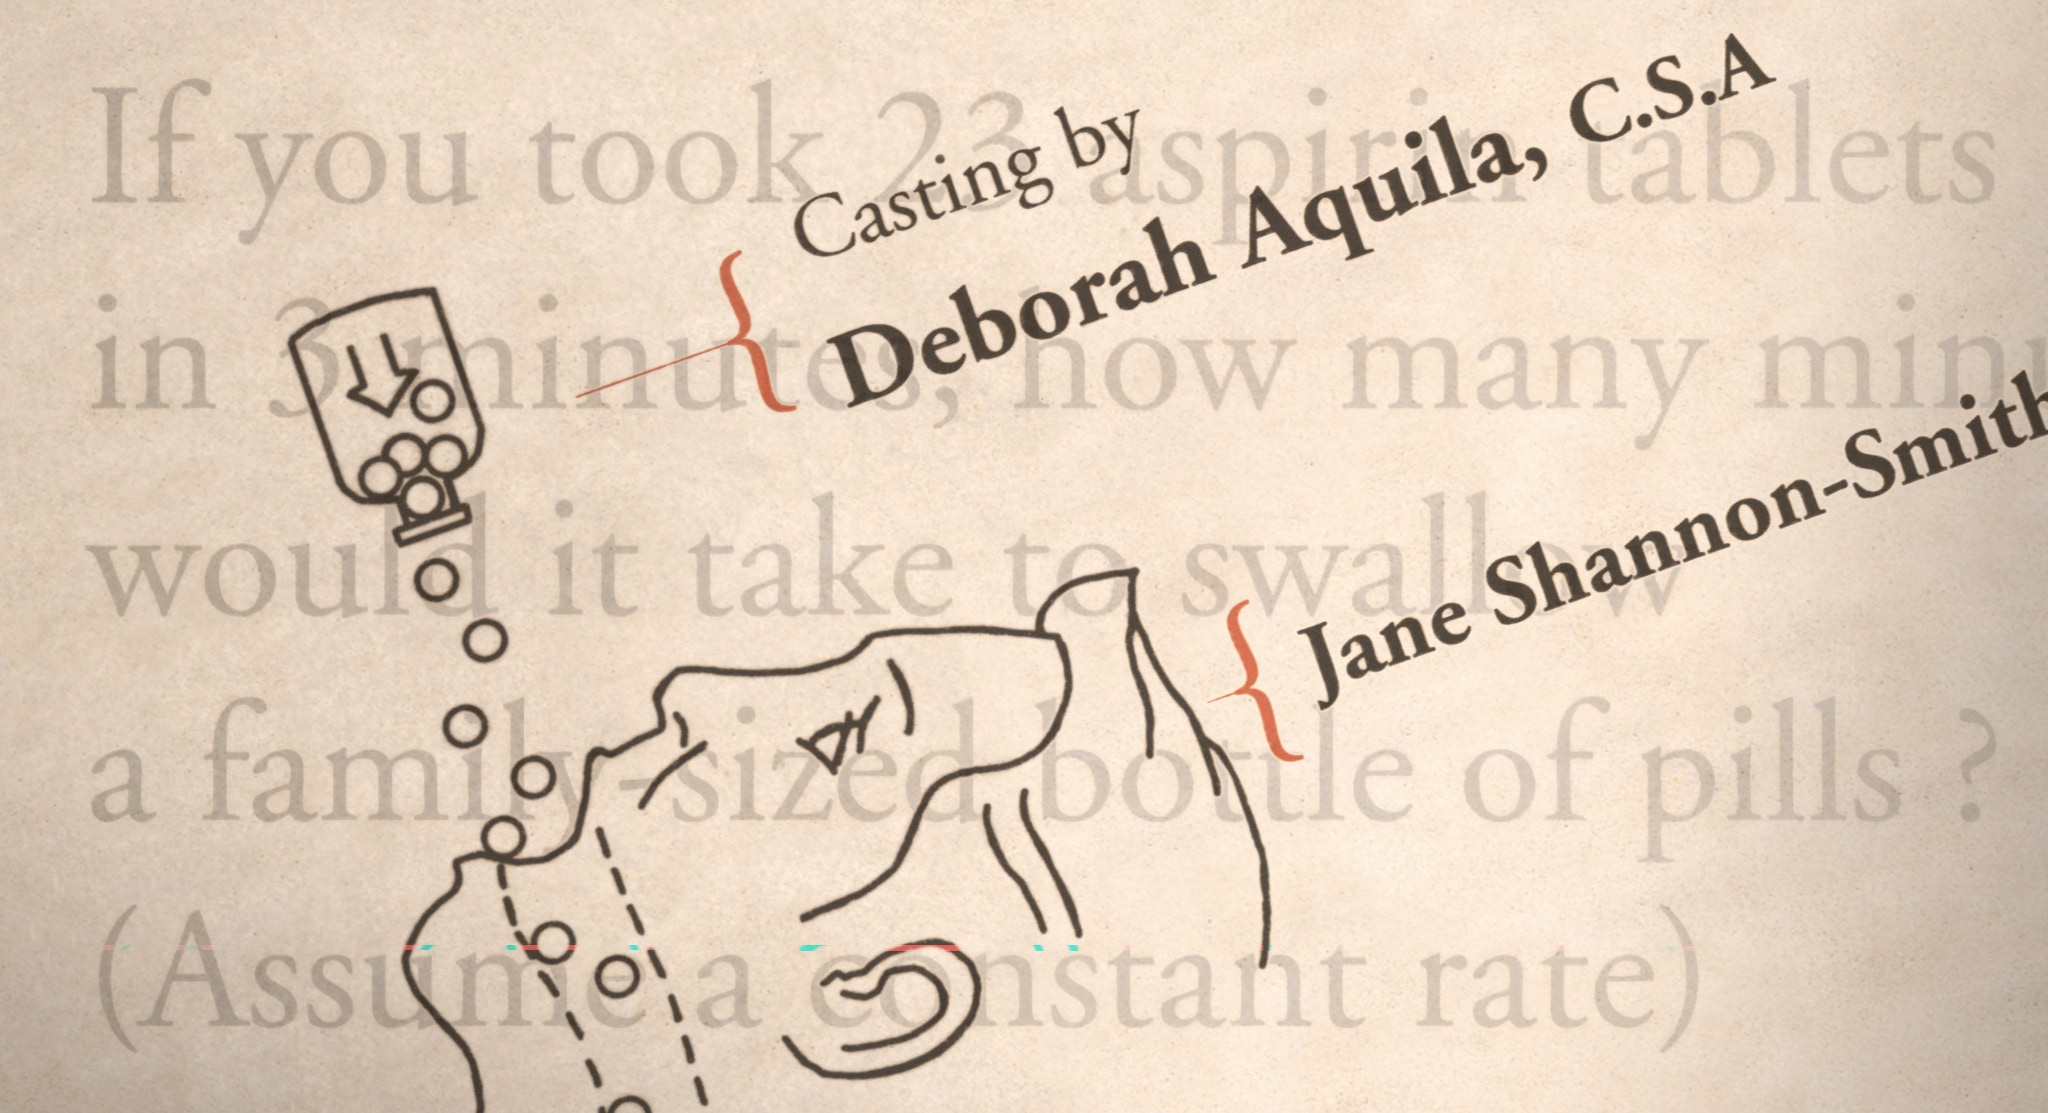 Casting by
Deborah Aquila, C.S.A
Jane Shannon-Smith
If you took 23 aspirin tablets
in 3 minutes, how many minu
would it take to swallow
a family-sized bottle of pills ?
(Assume a constant rate)